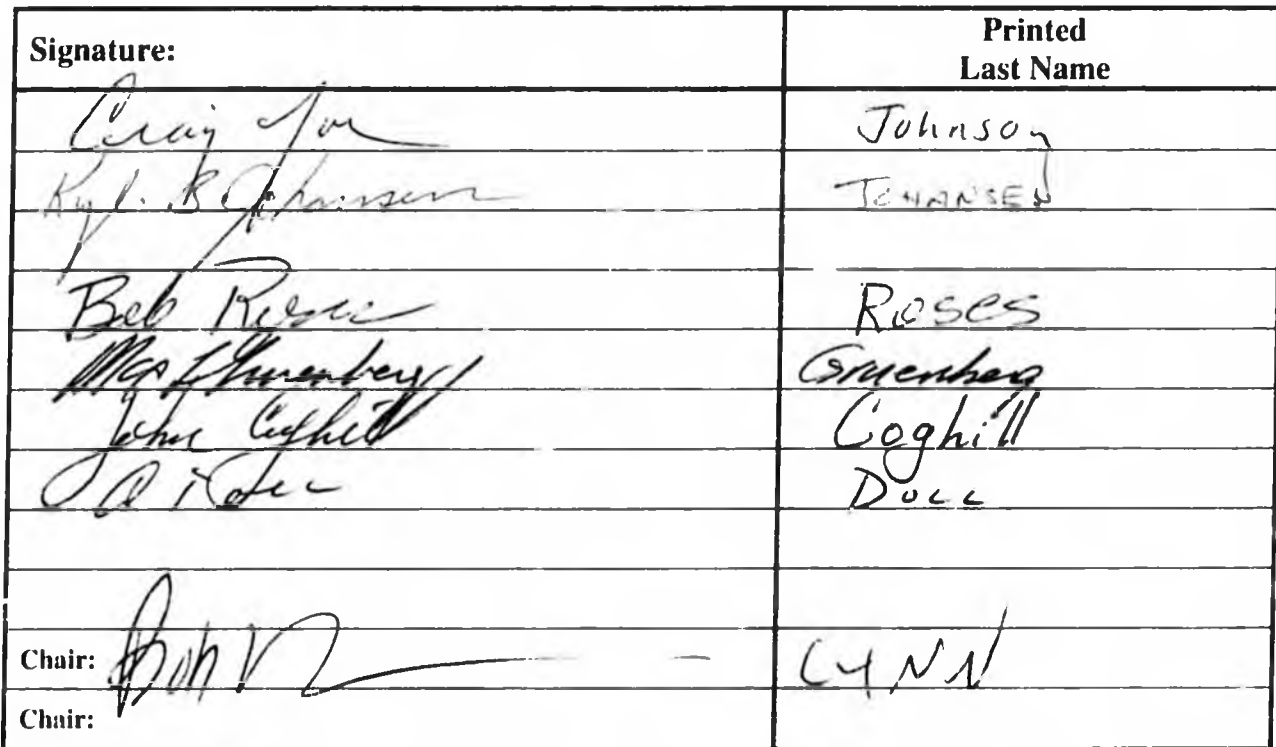 Signature: Printed Last Name
Craig Johnson
Kyl. B Johansen JOHANSEN
Bob Roses Roses
Max F Gruenberg Gruenberg
John Coghill Coghill
Doll
Chair: Bob LYNN
Chair: